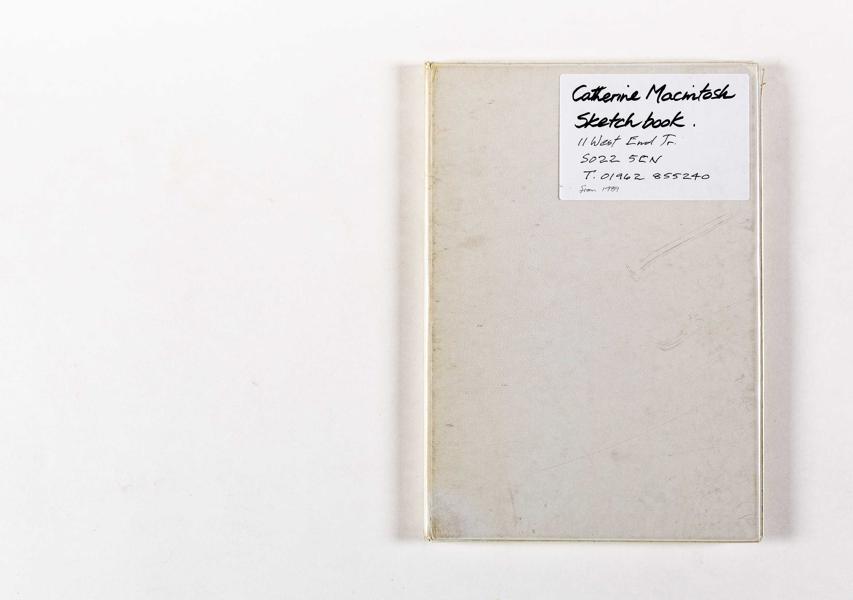 Catherine Macintosh
Sketch book.
11 West End Tr.
SO22 5EN
T. 01962 855240
from 1989